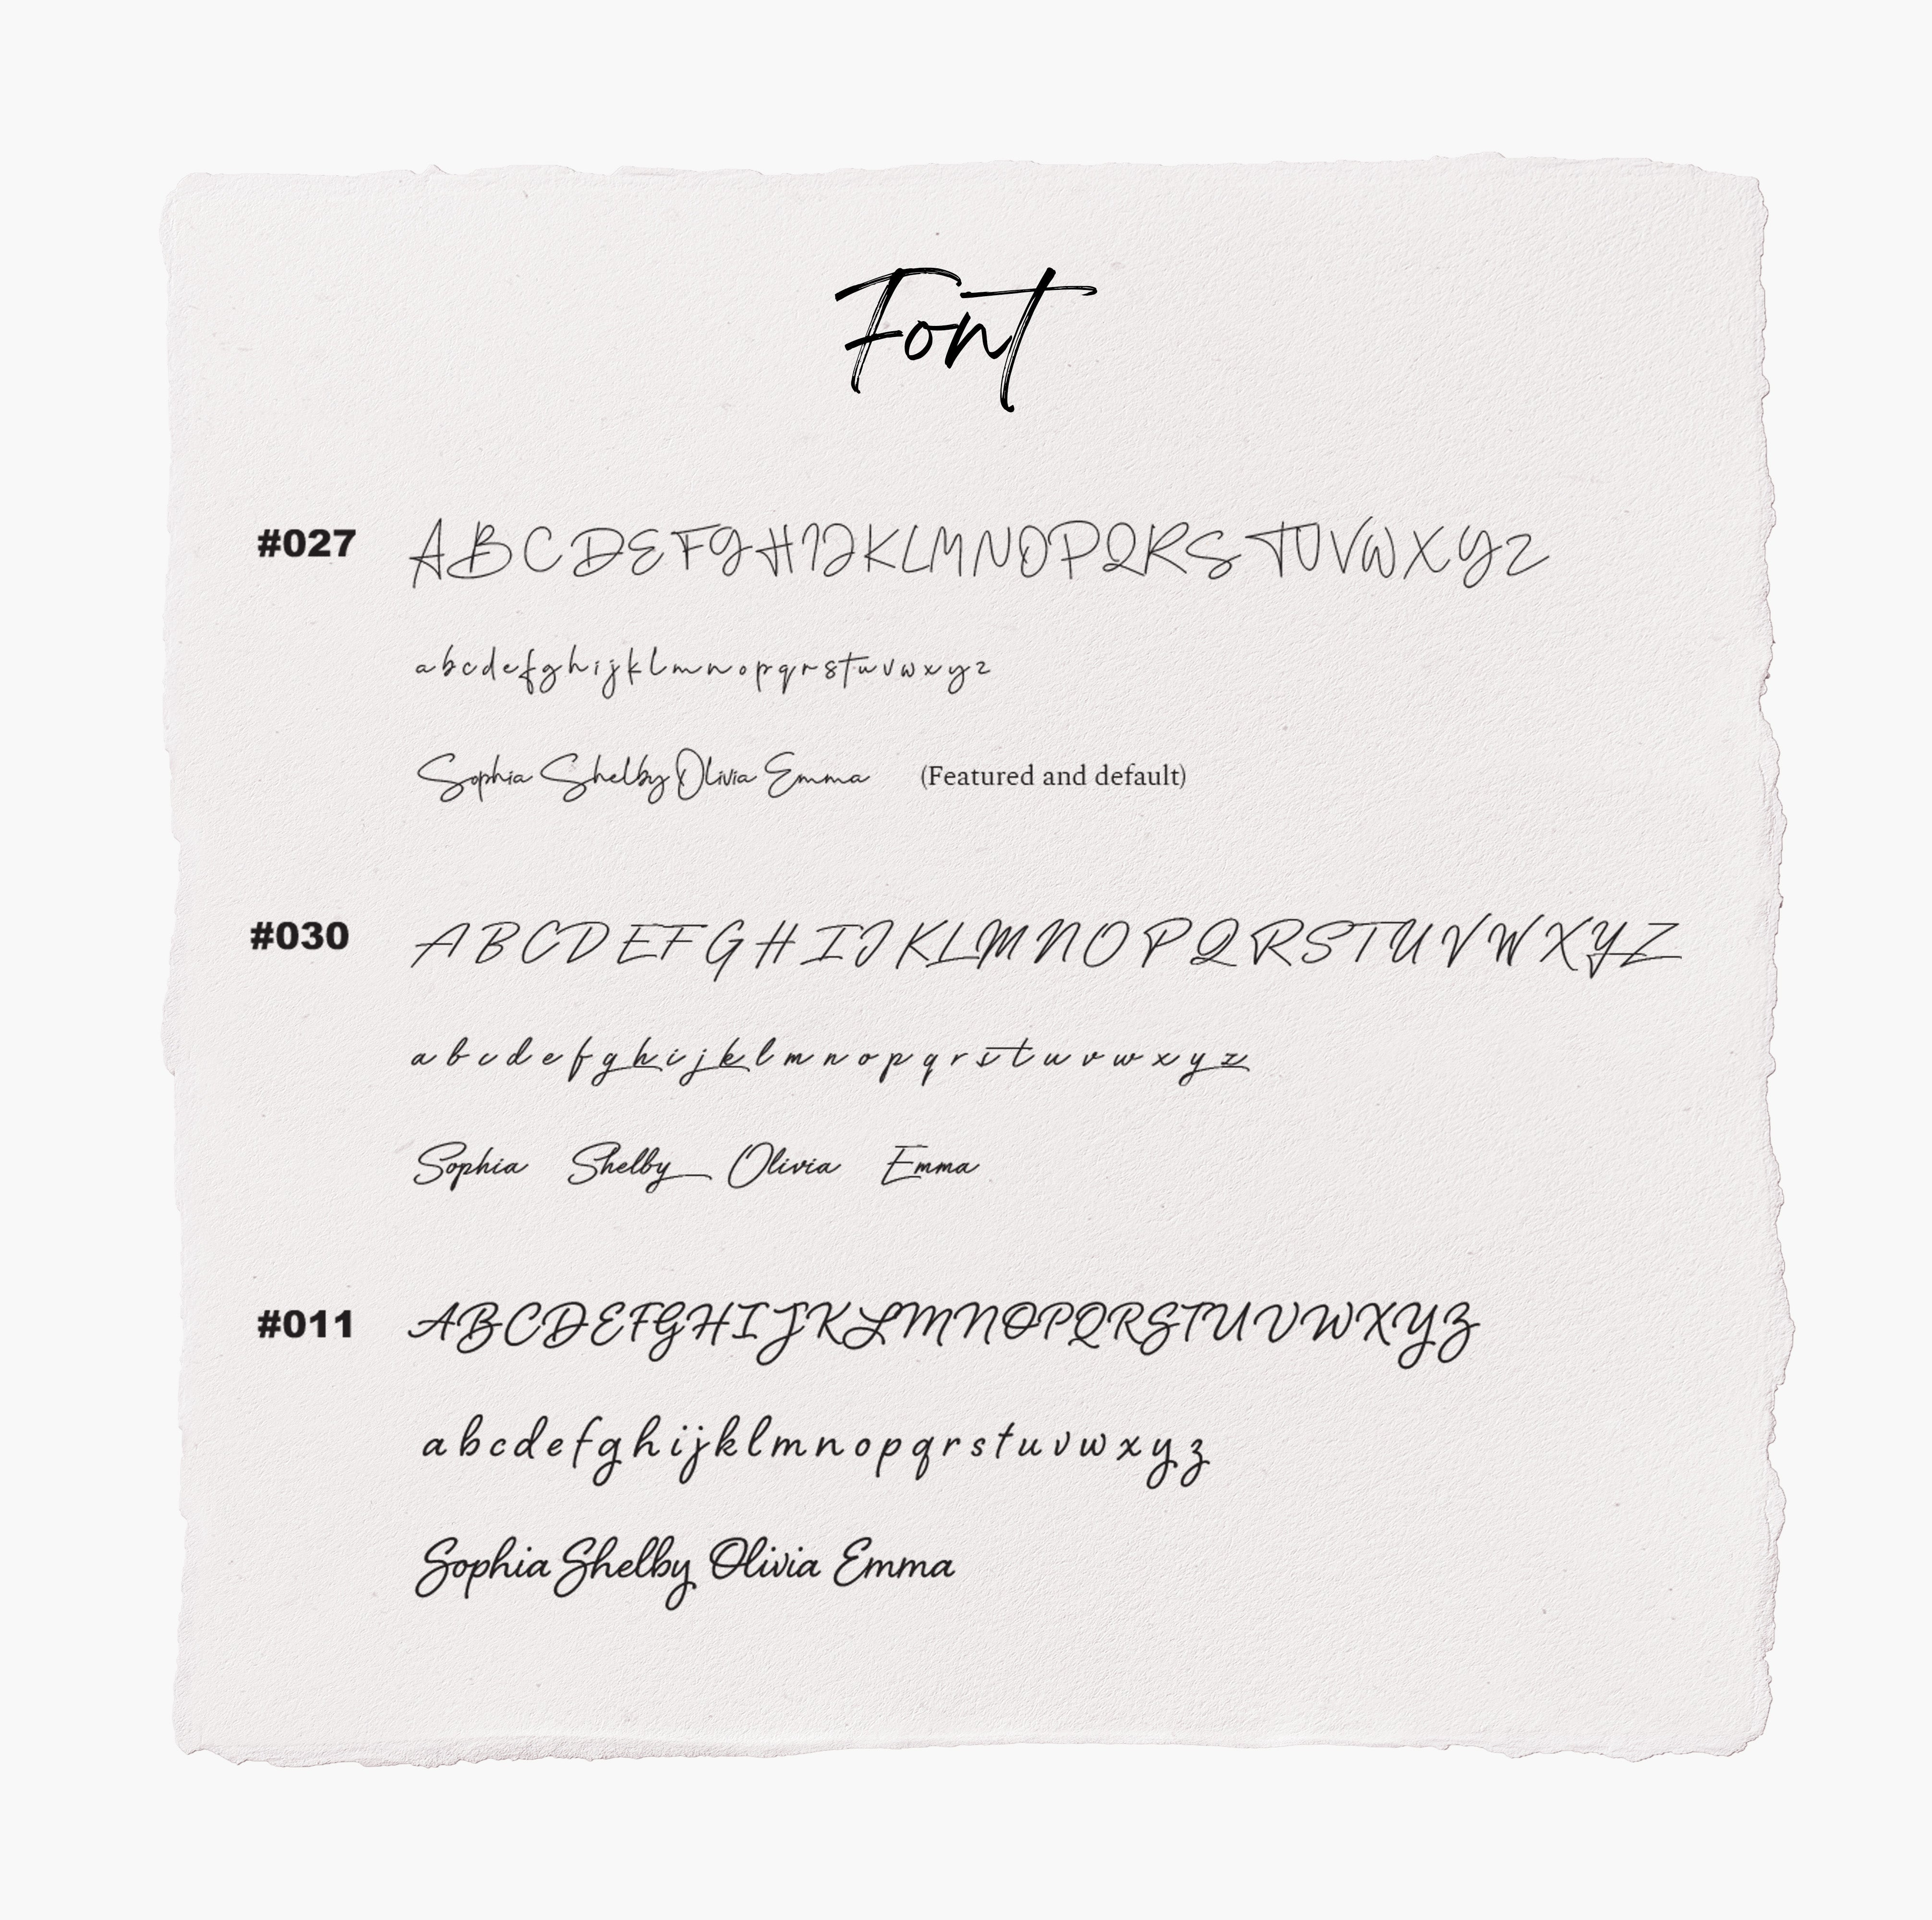 Font
#027 A B C D E F G H I J K L M N O P Q R S T U V W X Y Z
a b c d e f g h i j k l m n o p q r s t u v w x y z
Sophia Shelby Olivia Emma (Featured and default)
#030 A B C D E F G H I J K L M N O P Q R S T U V W X Y Z
a b c d e f g h i j k l m n o p q r s t u v w x y z
Sophia Shelby Olivia Emma
#011 A B C D E F G H I J K L M N O P Q R S T U V W X Y Z
a b c d e f g h i j k l m n o p q r s t u v w x y z
Sophia Shelby Olivia Emma